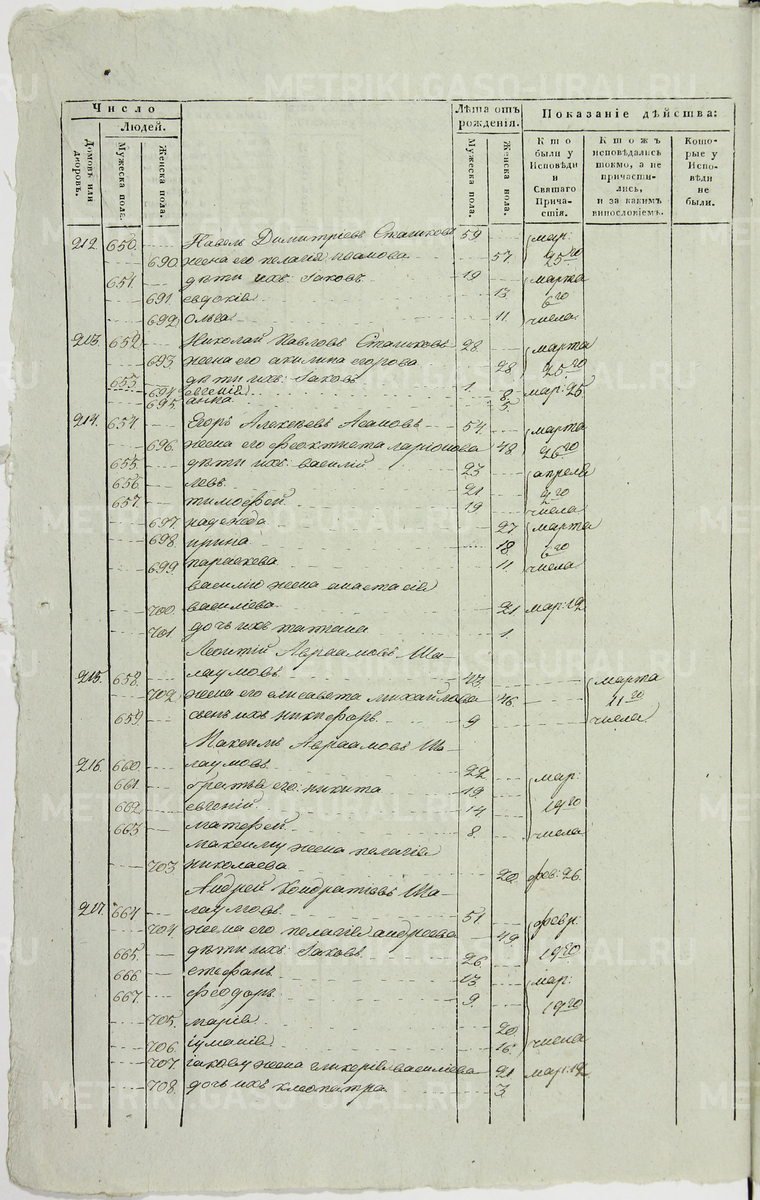 Число
Людей.
Домовъ или дворовъ.
Мужеска пола.
Женска пола.
Лѣта отъ рожденія.
Мужеска пола.
Женска пола.
Показаніе дѣйства:
Кто были у Исповѣди и Святаго Причастія.
Кто жъ исповѣдались токмо, а не причастились, и за какимъ винословіемъ.
Которые у Исповѣди не были.
212. 650. Павелъ Димитріевъ 59 мар:
690. жена его пелагія 57. 25го
651. дѣти ихъ: Іаковъ 19 марта
691. евдокія 13 6го
692. Ольга 11. числа
213. 652. Николай Павловъ 28. марта
693. жена его акилина егорова 28 25го
653. дѣти ихъ: Іаковъ 1. мар: 25
694. евгенія 8.
695. анна 5.
214. 654. Егоръ Алексѣевъ 54. марта
696. жена его феоктиста ларіонова 48 26го
655. дѣти ихъ: василій 23 апреля
656. левъ 21 2го
657. тимофей 19 числа
697. надежда 27 марта
698. ирина 18 6го
699. параскева 11. числа
василію жена анастасія
700. василіева 21 мар: 12
701 дочь ихъ татіана 1
Леонтій Авраамовъ Ша-
215. 658. лаумовъ 43. марта
702. жена его елисавета михайлова 46. 11го
659. сынъ ихъ никифоръ 9 числа
Максимъ Авраамовъ Ша-
216. 660. лаумовъ 22 мар:
661. братья его: никита 19
662. евгеній 14 19го
663. матфей 8. числа
максиму жена пелагія
703 николаева 20. фев: 26.
Андрей Кондратовъ Ша-
217. 664. лаумовъ 51 февр.
704. жена его пелагія андреева 49 19го
665. дѣти ихъ: Іаковъ 26 мар:
666. стефанъ 13
667. феодоръ 9. 19го
705. марія 20
706. іуліанія 16. числа
707. іакову жена гликерія василіева 21 мар: 12
708. дочь ихъ клеопатра 3.
METRIKI.GASO-URAL.RU